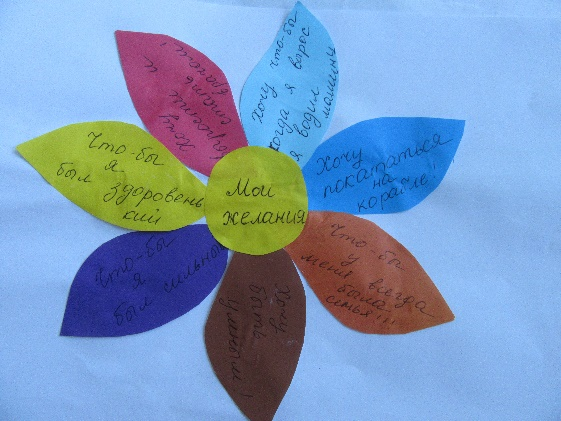 Мои
желания
хочу что-бы
когда я вырос
я водил
машину
Хочу
покататься
на
корабле!
Что-бы
у
меня всегда
была
семья!!!
Хочу
быть
Умным!
Что-бы
я
был сильный
Что-бы
я
был здоровень
кий
Хочу
вырасти и
спасть